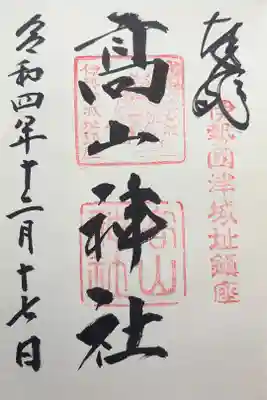 奉拝
伊勢国津城址鎮座
高山神社
令和四年十二月十七日